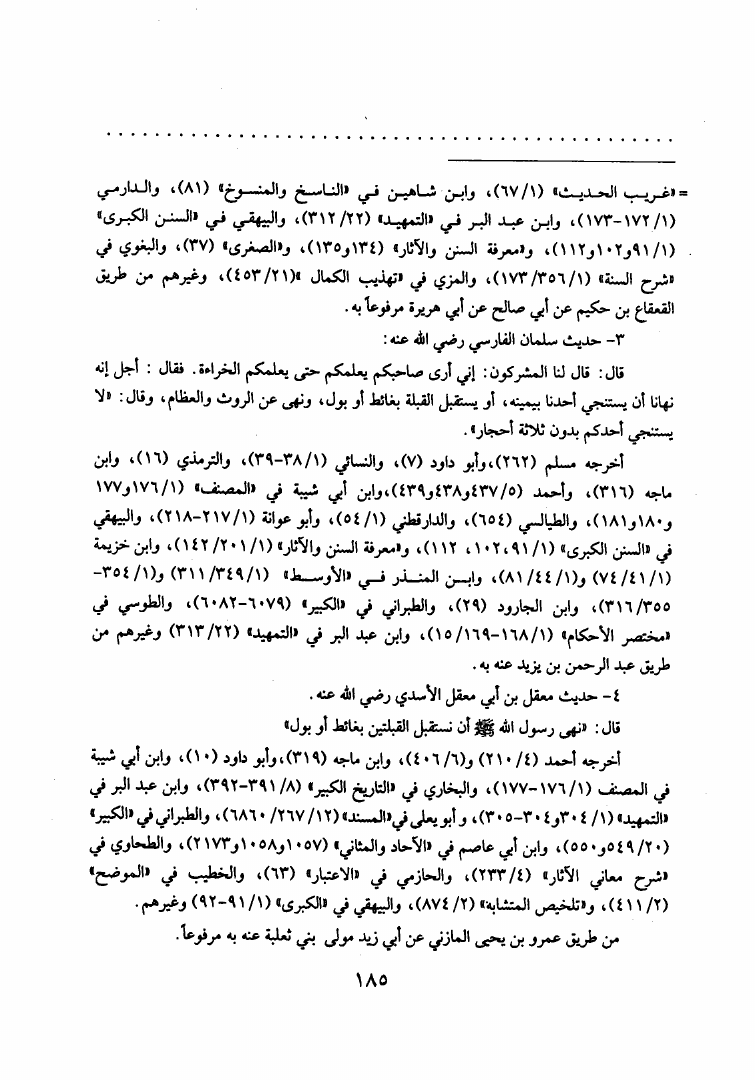 . . . . . . . . . . . . . . . . . . . . . . . . . . . . . . . . . . . . . . . . . .
= «غريب الحديث» (٦٧/١)، وابن شاهين في «الناسخ والمنسوخ» (٨١)، والدارمي
(١/ ١٧٢-١٧٣)، وابن عبد البر في «التمهيد» (٣١٢/٢٢)، والبيهقي في «السنن الكبرى»
(٩١/١و١٠٢و١١٢)، و«معرفة السنن والآثار» (١٣٤و١٣٥)، و«الصغرى» (٣٧)، والبغوي في
«شرح السنة» (١٧٣/٣٥٦/١)، والمزي في «تهذيب الكمال »(٤٥٣/٢١)، وغيرهم من طريق
القعقاع بن حكيم عن أبي صالح عن أبي هريرة مرفوعاً به.
٣- حديث سلمان الفارسي رضي الله عنه:
قال: قال لنا المشركون: إني أرى صاحبكم يعلمكم حتى يعلمكم الخراءة. فقال : أجل إنه
نهانا أن يستنجي أحدنا بيمينه، أو يستقبل القبلة بغائط أو بول، ونهى عن الروث والعظام، وقال: «لا
يستنجي أحدكم بدون ثلاثة أحجار».
أخرجه مسلم (٢٦٢)،وأبو داود (٧)، والنسائي (٣٨/١-٣٩)، والترمذي (١٦)، وابن
ماجه (٣١٦)، وأحمد (٤٣٧/٥و٤٣٨و٤٣٩)،وابن أبي شيبة في «المصنف» (١٧٦/١و١٧٧
و١٨٠و١٨١)، والطيالسي (٦٥٤)، والدارقطني (٥٤/١)، وأبو عوانة (٢١٧/١-٢١٨)، والبيهقي
في «السنن الكبرى» (٩١/١،١٠٢، ١١٢)، و«معرفة السنن والآثار» (١٤٢/٢٠١/١)، وابن خزيمة
(٧٤/٤١/١) و(٨١/٤٤/١)، وابن المنذر في «الأوسط» (٣١١/٣٤٩/١) و(٣٥٤/١-
٣١٦/٣٥٥)، وابن الجارود (٢٩)، والطبراني في «الكبير» (٦٠٧٩-٦٠٨٢)، والطوسي في
«مختصر الأحكام» (١٦٨/١-١٥/١٦٩)، وابن عبد البر في «التمهيد» (٣١٣/٢٢) وغيرهم من
طريق عبد الرحمن بن يزيد عنه به.
٤- حديث معقل بن أبي معقل الأسدي رضي الله عنه.
قال: «نهى رسول الله ﷺ أن نستقبل القبلتين بغائط أو بول»
أخرجه أحمد (٢١٠/٤) و(٤٠٦/٦)، وابن ماجه (٣١٩)،وأبو داود (١٠)، وابن أبي شيبة
في المصنف (١٧٦/١-١٧٧)، والبخاري في «التاريخ الكبير» (٣٩١/٨-٣٩٢)، وابن عبد البر في
«التمهيد» (٣٠٤/١و٣٠٤-٣٠٥)، وأبو يعلى في«المسند» (٦٨٦٠/٢٦٧/١٢)، والطبراني في «الكبير»
(٥٤٩/٢٠و٥٥٠)، وابن أبي عاصم في «الآحاد والمثاني» (١٠٥٧و١٠٥٨و٢١٧٣)، والطحاوي في
«شرح معاني الآثار» (٢٣٣/٤)، والحازمي في «الاعتبار» (٦٣)، والخطيب في «الموضح»
(٤١١/٢)، و«تلخيص المتشابه» (٨٧٤/٢)، والبيهقي في «الكبرى» (٩١/١-٩٢) وغيرهم.
من طريق عمرو بن يحيى المازني عن أبي زيد مولى بني ثعلبة عنه به مرفوعاً.
١٨٥